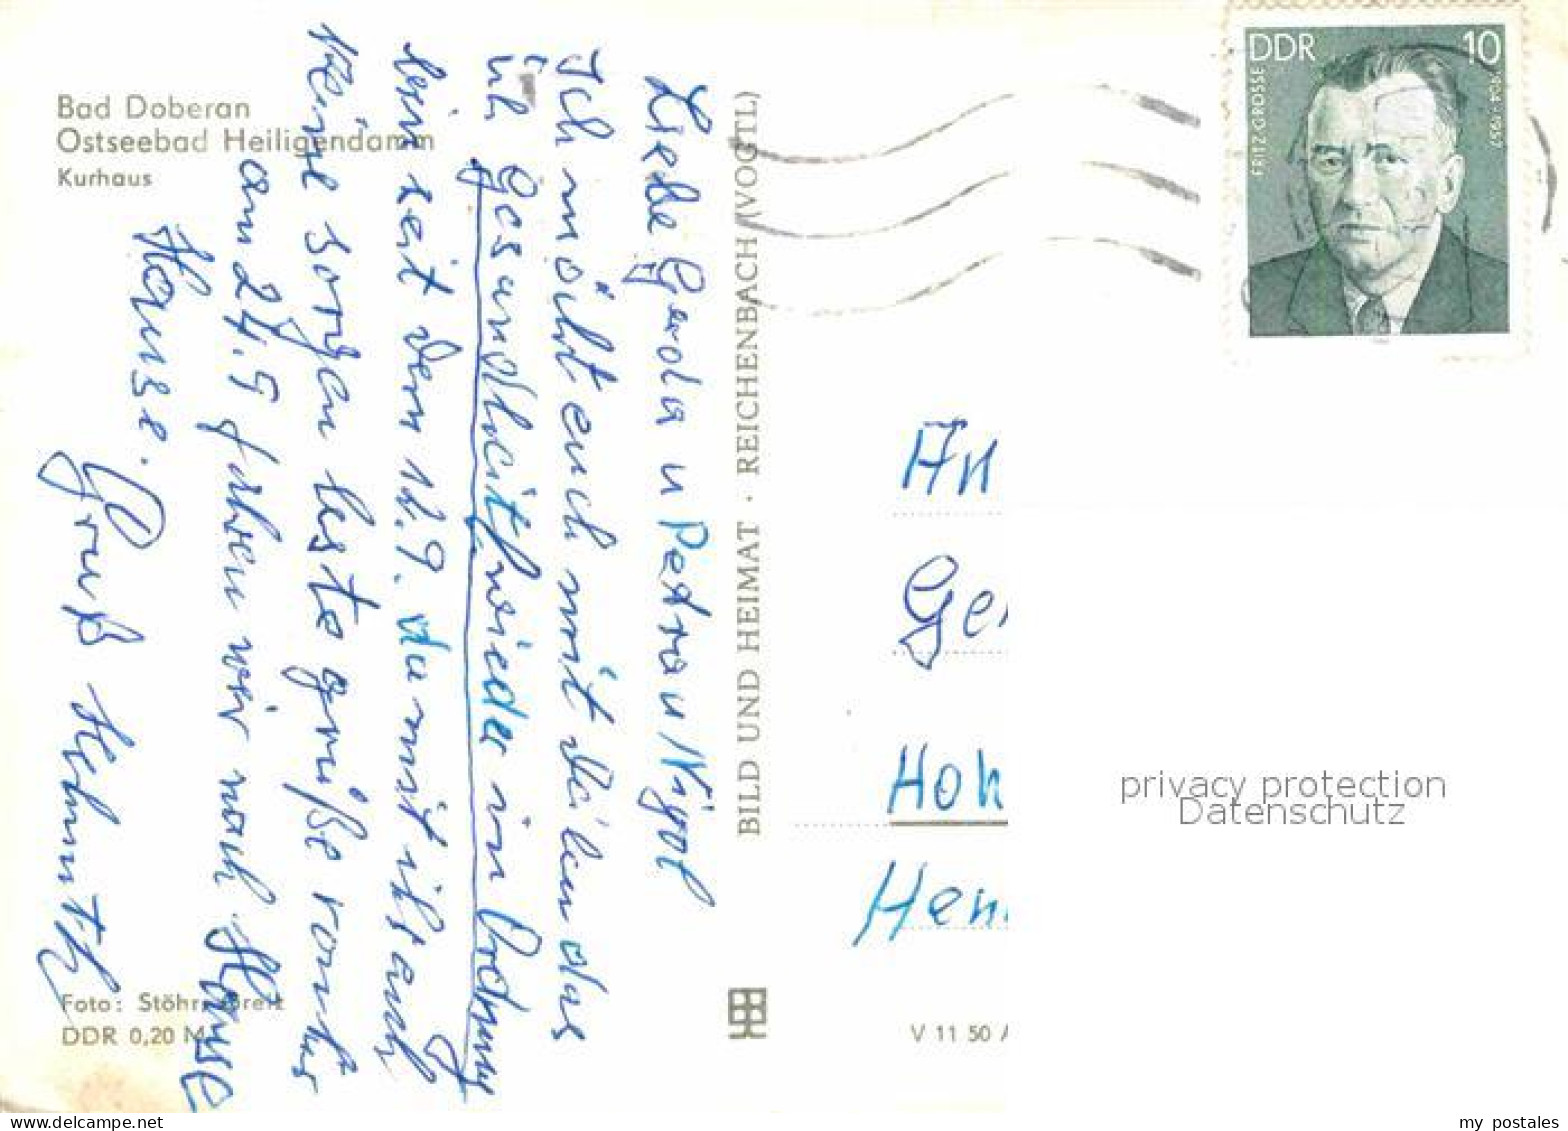 Bad Doberan
Ostseebad Heiligendamm
Kurhaus
Liebe Gerda u Petra u Nigol
Ich möcht euch mit deilen das
ich Gesundheit wieder in Ordnung
bin seit dem 12.9. damit ihr euch
keine sorgen
beste grüße von
am 24.9 fahren wir nach Hause
Hause.
Gruß Helmuth
Foto: Stöhr,
DDR 0,20 M
BILD UND HEIMAT · REICHENBACH (VOGTL)
V 11 50 A
DDR 10
FRITZ GROSSE
1904-1957
An
Ger
Hoh
Hen
privacy protection
Datenschutz
my postales